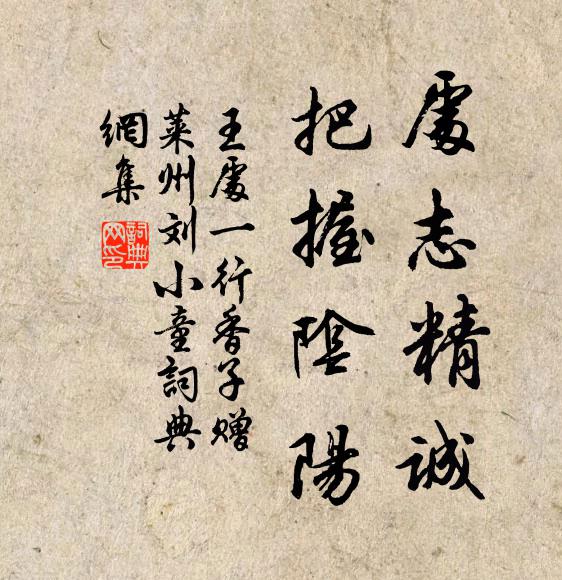 處志精誠
把握陰陽
王處一行香子赠
萊州刘小童詞典
網集
詞典网印